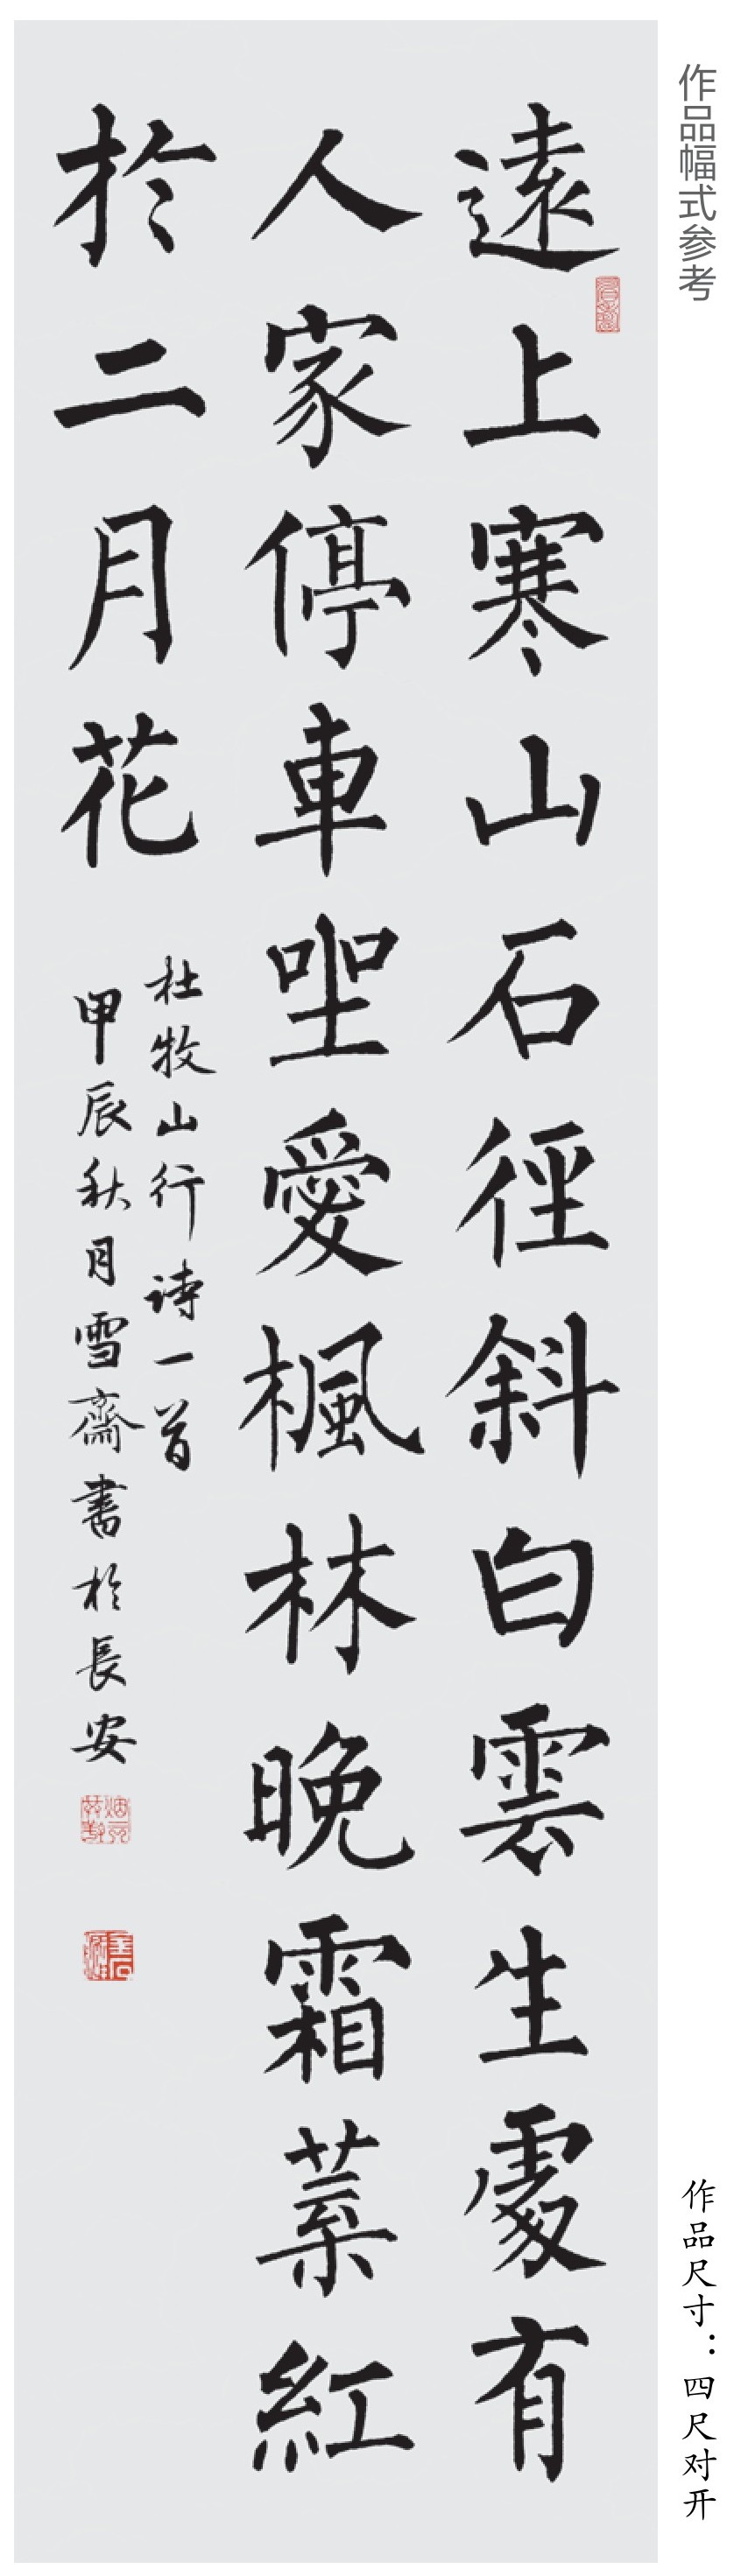 作品幅式参考
遠上寒山石徑斜白雲生處有
人家停車坐愛楓林晚霜葉紅
於二月花
杜牧山行诗一首
甲辰秋月雪齋書於長安
作品尺寸：四尺对开